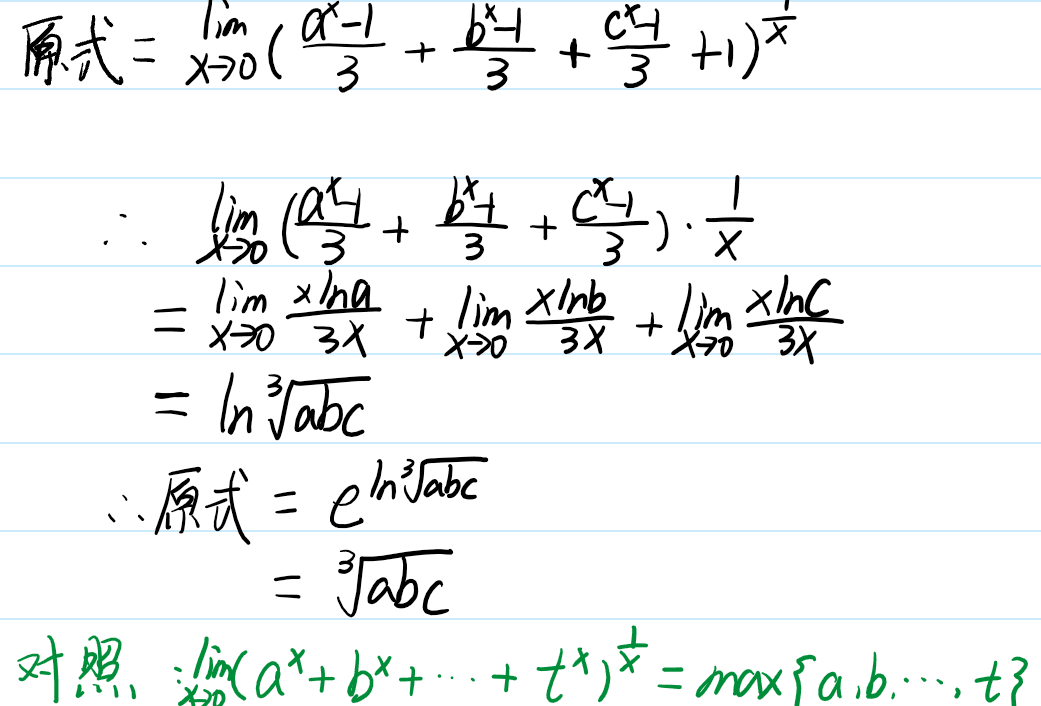 原式 = lim x→0 ( (a^x-1)/3 + (b^x-1)/3 + (c^x-1)/3 + 1 )^(1/x)
∴ lim x→0 ( (a^x-1)/3 + (b^x-1)/3 + (c^x-1)/3 ) · 1/x
= lim x→0 (x ln a)/(3x) + lim x→0 (x ln b)/(3x) + lim x→0 (x ln c)/(3x)
= ln ∛(abc)
∴ 原式 = e^(ln ∛(abc))
= ∛(abc)
对照: lim x→0 (a^x + b^x + ··· + t^x)^(1/x) = max{a,b,···,t}